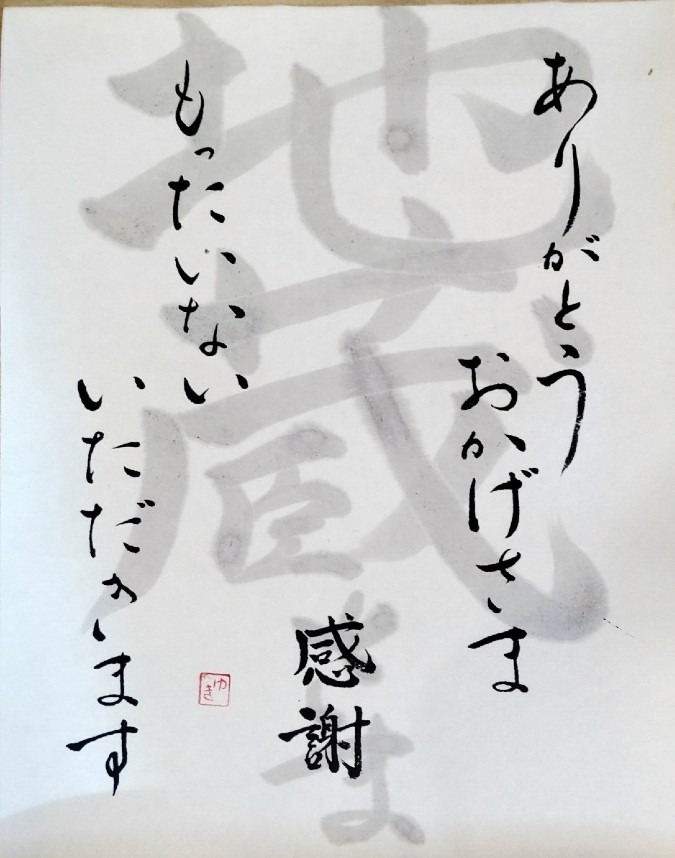 ありがとう
おかげさま
感謝
もったいない
いただきます
ゆき
地蔵さま